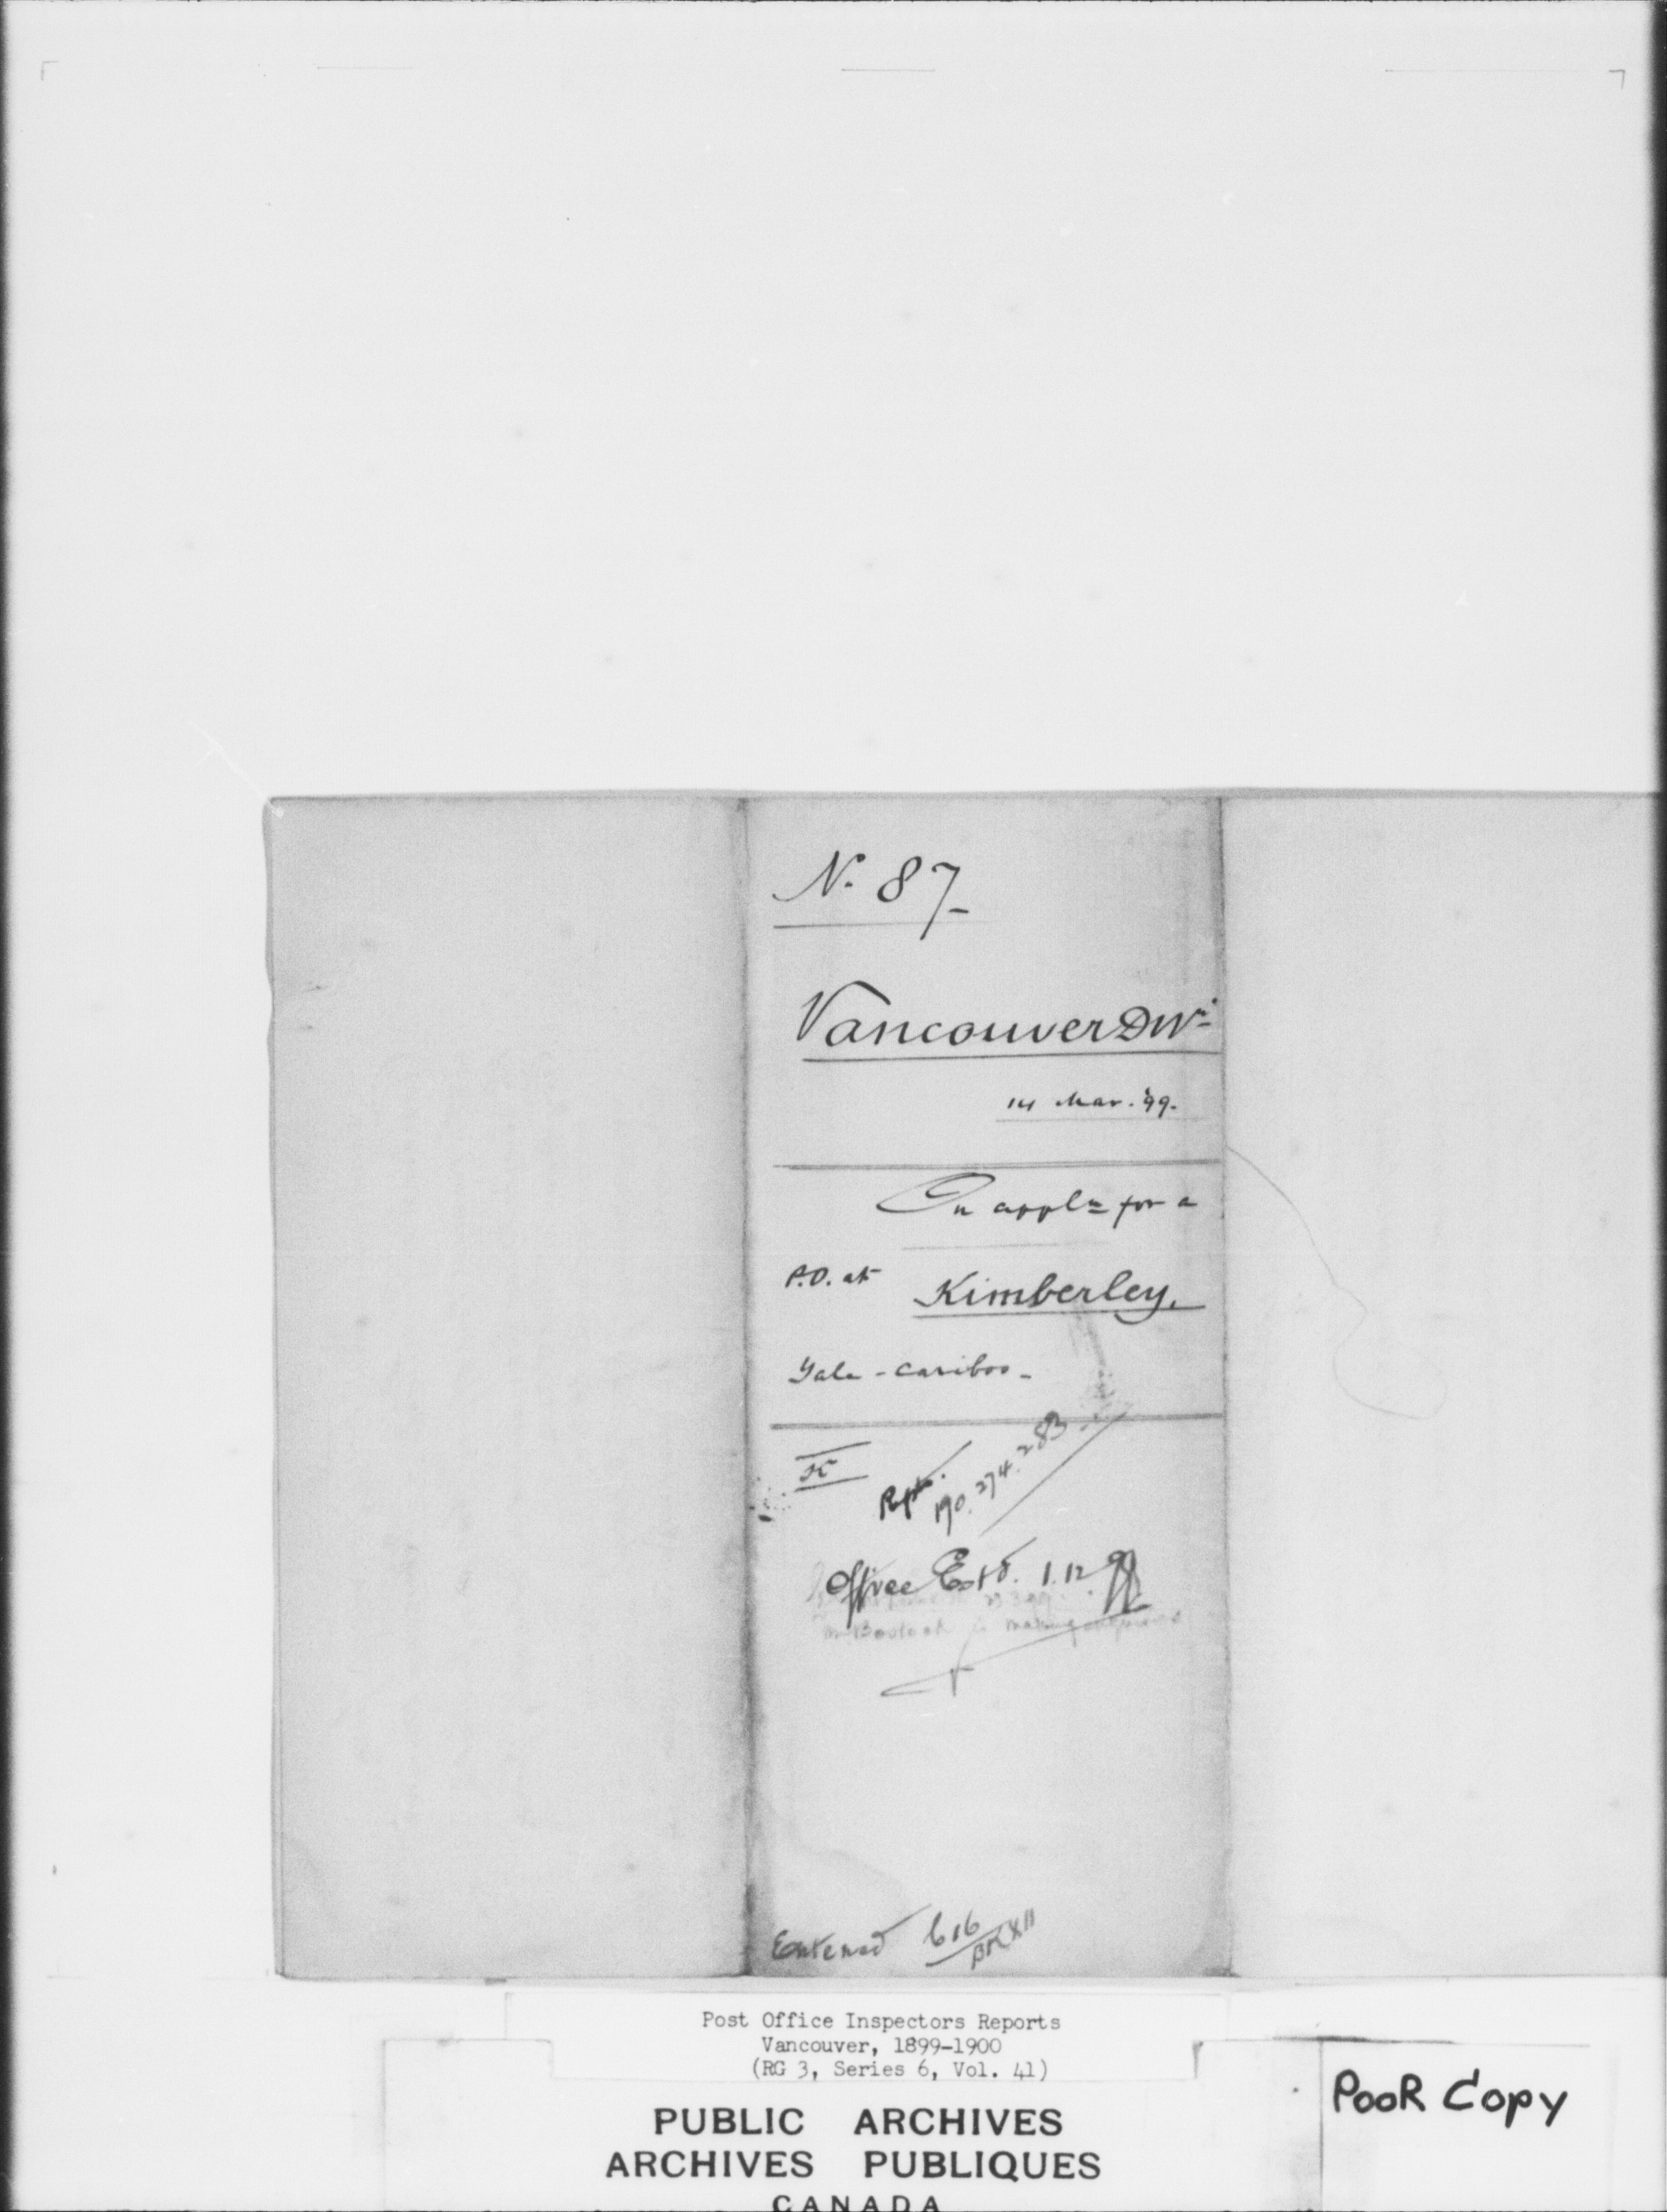 No. 87
Vancouver Dn.
14 Mar. '99.
On appln for a
P.O. at Kimberley.
Yale - Cariboo -
K
Repts.
190. 274. 283
Office Estd. 1.12.99
Mr is making
Entered 616
BK XII
Post Office Inspectors Reports
Vancouver, 1899-1900
(RG 3, Series 6, Vol. 41)
PUBLIC ARCHIVES
ARCHIVES PUBLIQUES
CANADA
POOR COPY